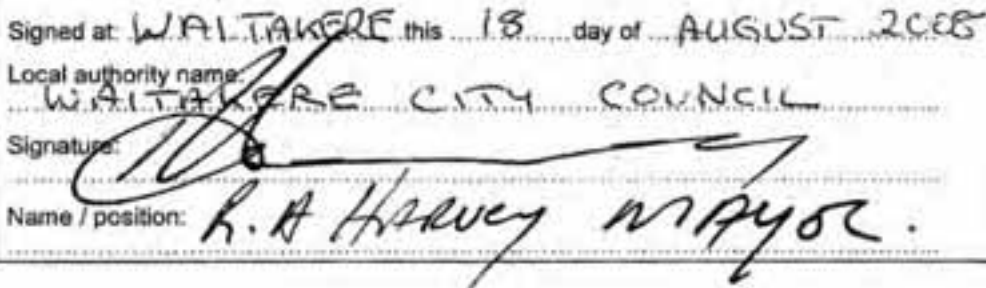 Signed at: WAITAKERE this 18 day of AUGUST 2008
Local authority name:
WAITAKERE CITY COUNCIL
Signature:
Name / position: R.A HARVEY MAYOR.